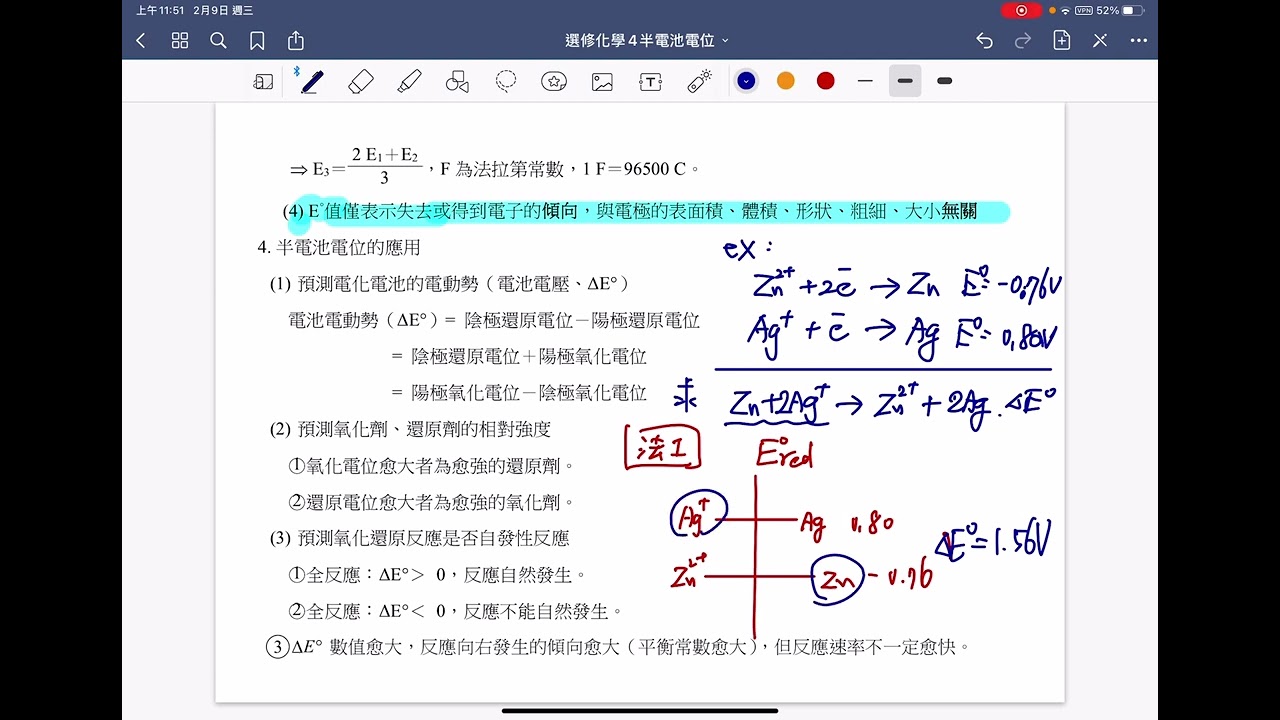 上午11:51 2月9日 週三
VPN 52%
選修化學4半電池電位
T
⇒ E₃＝(2 E₁＋E₂)/3，F 為法拉第常數，1 F＝96500 C。
(4) E°值僅表示失去或得到電子的傾向，與電極的表面積、體積、形狀、粗細、大小無關
4. 半電池電位的應用
(1) 預測電化電池的電動勢（電池電壓、ΔE°）
電池電動勢（ΔE°）＝ 陰極還原電位－陽極還原電位
＝ 陰極還原電位＋陽極氧化電位
＝ 陽極氧化電位－陰極氧化電位
(2) 預測氧化劑、還原劑的相對強度
①氧化電位愈大者為愈強的還原劑。
②還原電位愈大者為愈強的氧化劑。
(3) 預測氧化還原反應是否自發性反應
①全反應：ΔE°＞ 0，反應自然發生。
②全反應：ΔE°＜ 0，反應不能自然發生。
③ΔE° 數值愈大，反應向右發生的傾向愈大（平衡常數愈大），但反應速率不一定愈快。
ex：
Zn²⁺ + 2e⁻ → Zn E°= -0.76V
Ag⁺ + e⁻ → Ag E°= 0.80V
Zn+2Ag⁺ → Zn²⁺ + 2Ag . ΔE°
法1 E°red
Ag⁺ Ag 0.80
ΔE°=1.56V
Zn²⁺ Zn -0.76